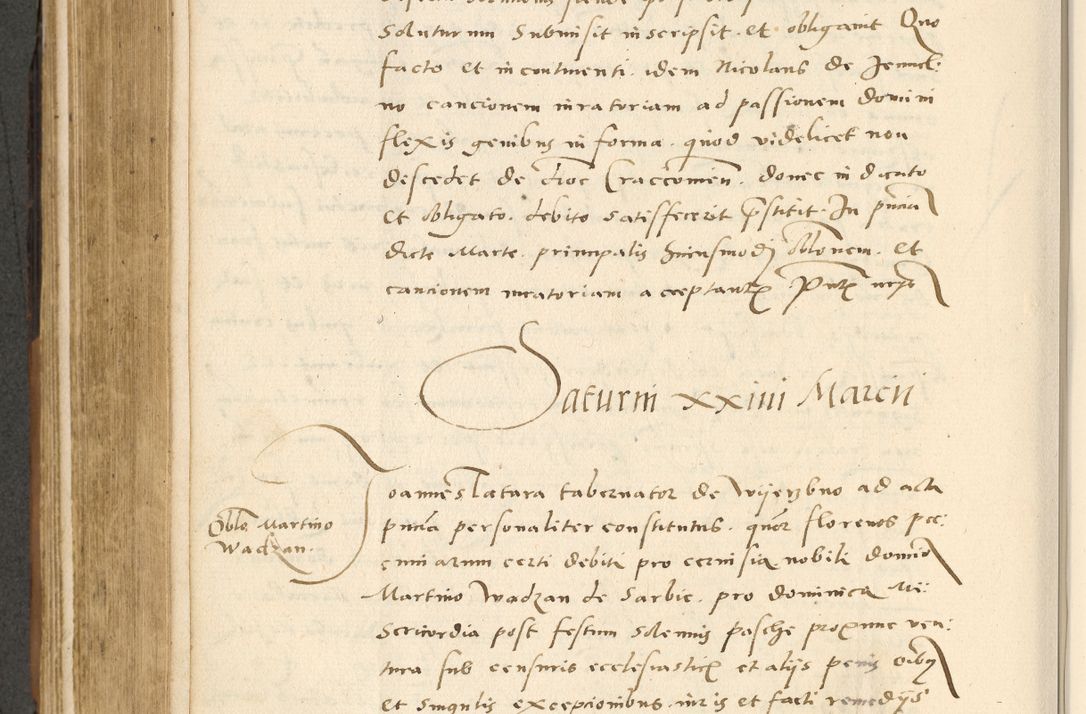 soluturum submisit inscripsit et obligavit Quo
facto et incontinenti idem Nicolaus de Jemiel:
no caucionem iuratoriam ad passionem domini
flexis genibus in forma quod videlicet non
descedet de dioc Craccomen. donec indicato
et obligato debito satisffecerit prestitit In pncia
dicte Marte principalis huiusmodi oblonem et
caucionem iuratoriam acceptantis Pntibus
Saturni xxiiii Marcii
Joannes Tatara tabernator de Wijerzbno ad acta
Oblo Martino
Wadzan.
pncia personaliter constitutus quor florenos pec:
cuniarum certi debiti pro cervisia nobili domino
Martino Wadzan de Sarbie pro dominica Mi:
sericordia post festum solennis pasche proxime ven:
tura sub censuris ecclesiasticis et alijs penis oibus
et singulis excepcionibus iuris et facti remedijs